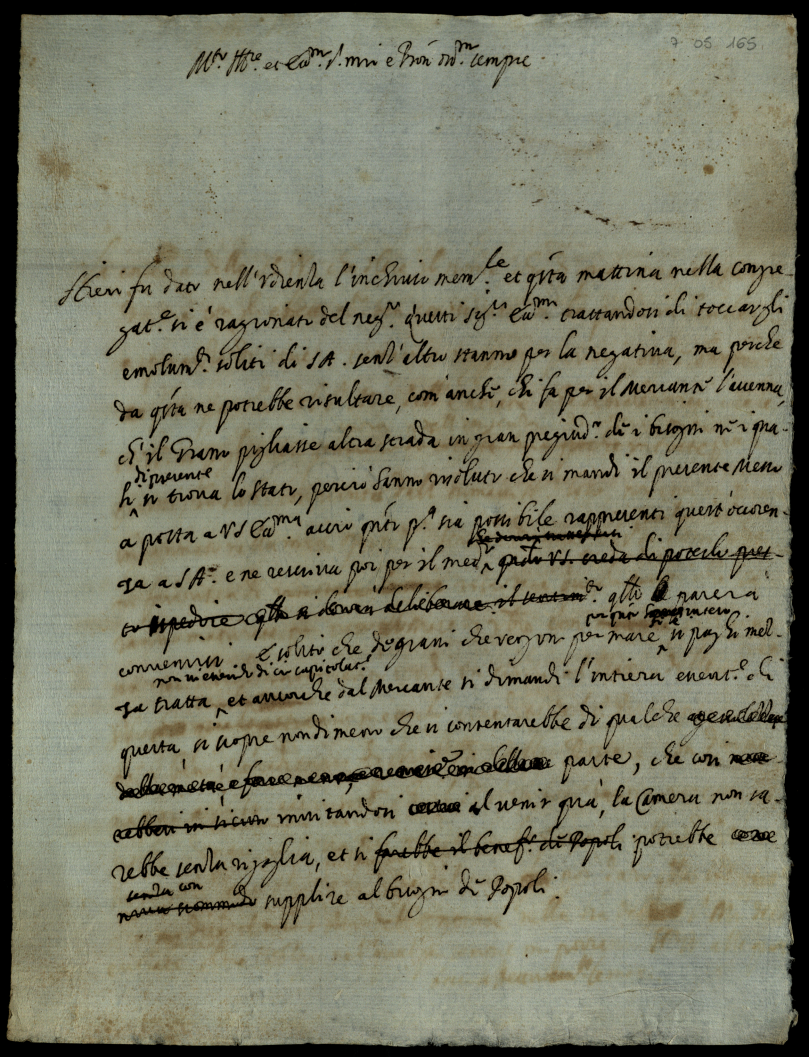 7 05 165
Mto. Illre. et Ecc.mo S. mio e Pron. oss.mo sempre
Hieri fu dato nell'Udienza l'inchiuso mem.le et q.sta mattina nella congre-
gat.e si è ragionato del neg.o Questi Sig.ri Ecc.mi trattandosi di toccargli
emolum.ti soliti di S A. senz'altro stanno per la negativa, ma perche
da q.sta ne potrebbe risultare, com'anche, chi fa per il Mercante l'accenna,
ch'il Grano pigliasse altra strada in gran pregiud.o de i bisogni ne i qua-
li di presente si trova lo Stato, perciò hanno risoluto che si mandi il presente Messo
a posta a VS Ecc.ma acciò q.nto p.a sia possibile rappresenti quest'occoren-
za a S A. e ne rescriva poi per il med.o q.llo parerà
convenirsi è solito che de grani che vengon per mare si paghi mez-
non vi essendo di ciò capitolat.e
za tratta, et ancorche dal Mercante si dimandi l'intiera esent.e di
questa si scopre nondimeno che si contentarebbe di qualche
parte, che così
invitandosi al venir qua, la Camera non sa-
rebbe senza regaglia, et si potrebbe
senza con
supplire al bisogni de Popoli.